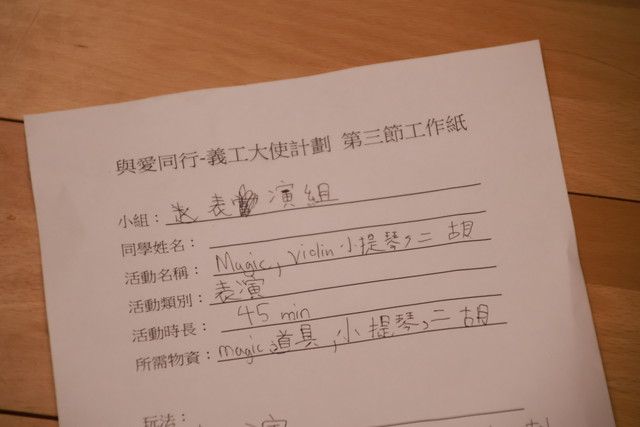 與愛同行-義工大使計劃 第三節工作紙
小組： 表演組
同學姓名：
活動名稱： Magic, violin 小提琴,二胡
活動類別： 表演
活動時長： 45 min
所需物資： magic 道具,小提琴,二胡
玩法：